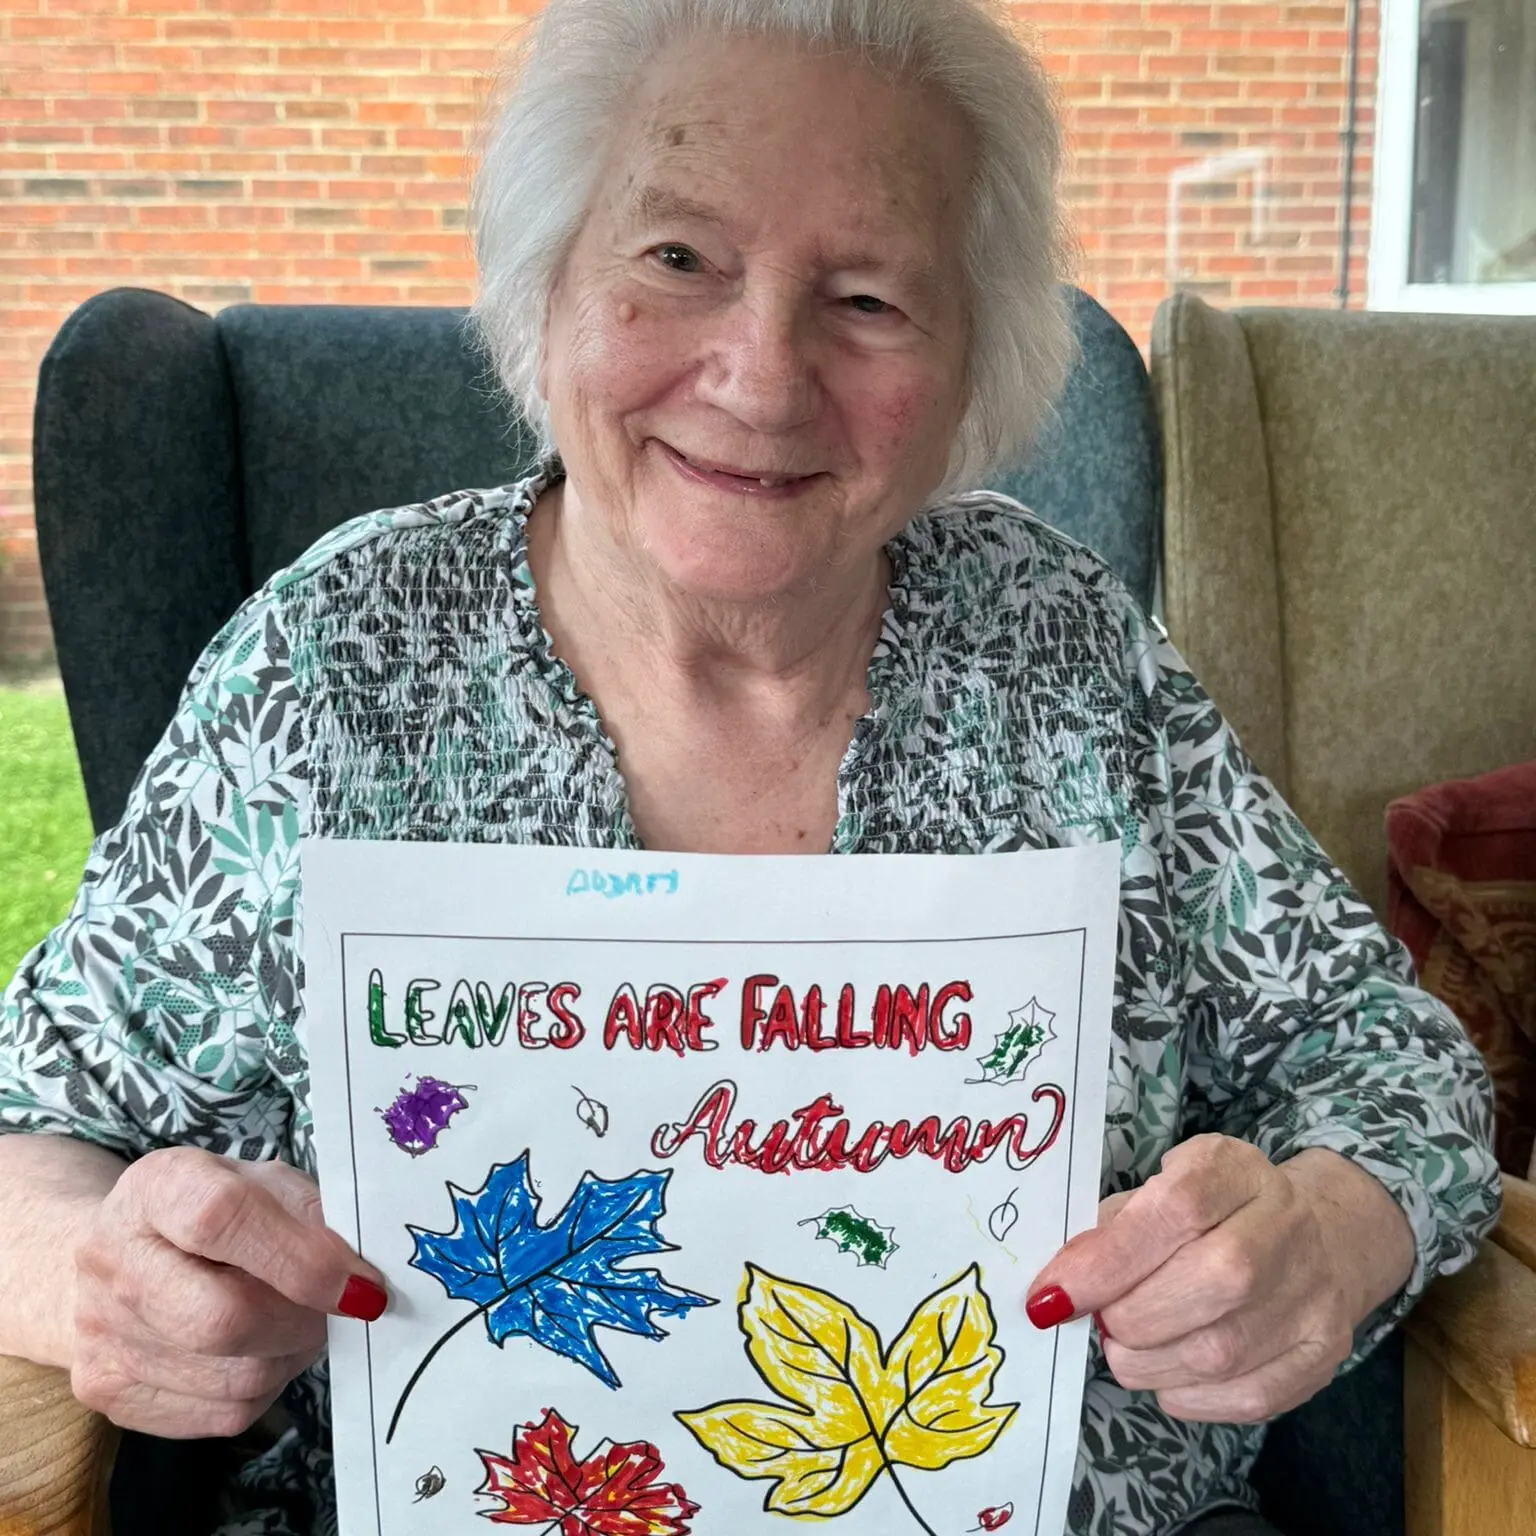 AUDREY
LEAVES ARE FALLING
Autumn